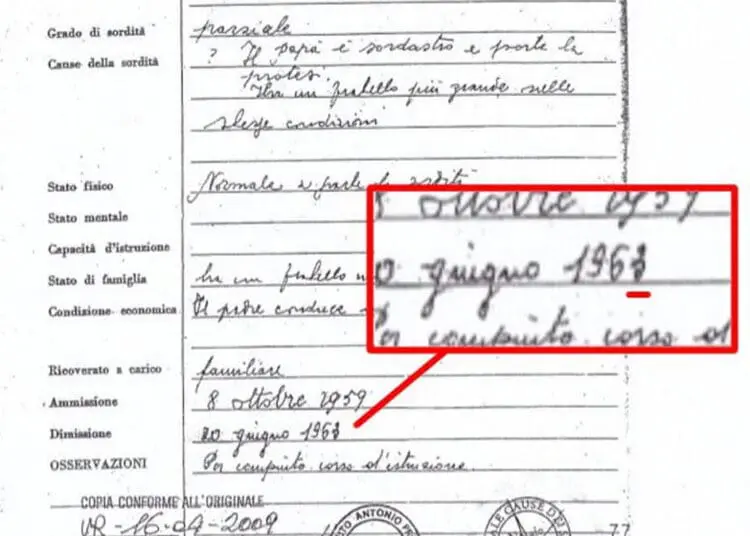 Grado di sordità parziale
Cause della sordità ? Il papà è sordastro e porta la
protesi.
Ha un fratello più grande nelle
stesse condizioni
Stato fisico Normale a parte la sordità
Stato mentale
Capacità d'istruzione
Stato di famiglia ha un fratello
Condizione economica Il padre conduce
8 ottobre 1959
giugno 196
Per compiuto corso d'
Ricoverato a carico familiare
Ammissione 8 ottobre 1959
Dimissione 20 giugno 196
OSSERVAZIONI Per compiuto corso d'istruzione.
COPIA CONFORME ALL'ORIGINALE
VR-16-04-2009
ANTONIO
CAUSE DEI
77